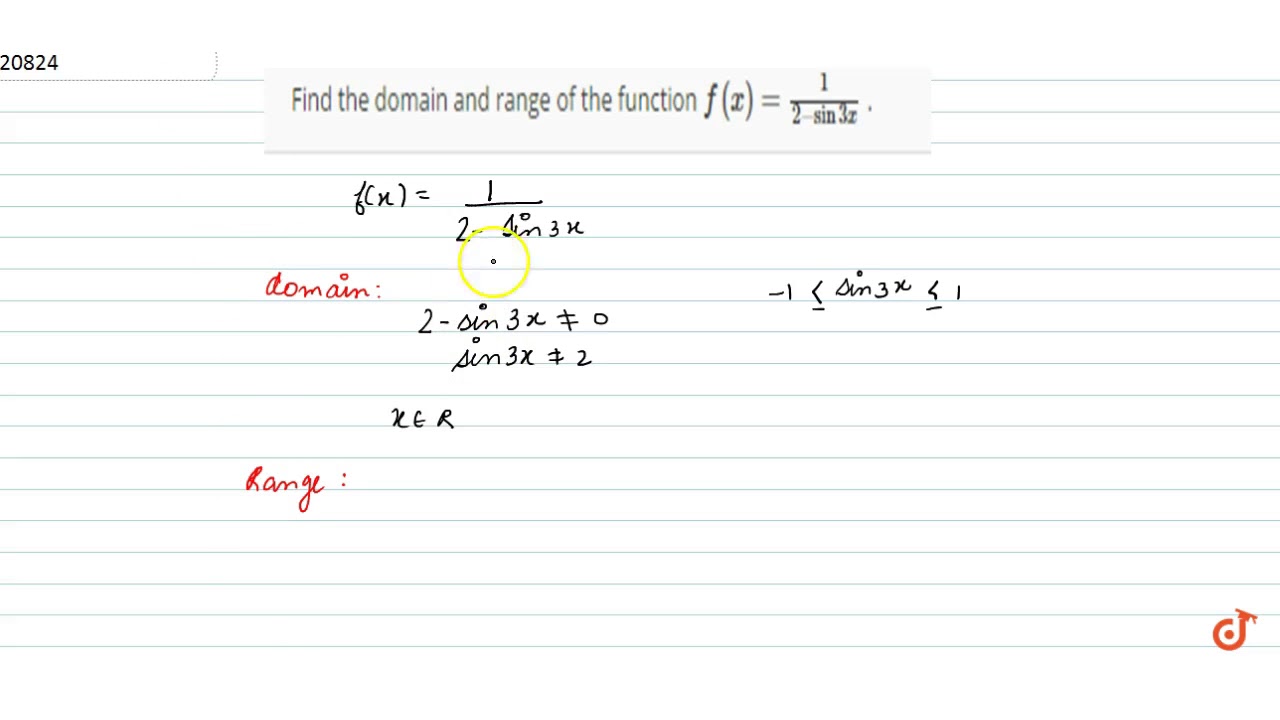 20824
Find the domain and range of the function f(x) = 1/(2-sin 3x) .
f(x) = 1/(2 - sin 3x)
domain:
-1 ≤ sin 3x ≤ 1
2 - sin 3x ≠ 0
sin 3x ≠ 2
x ∈ R
Range :